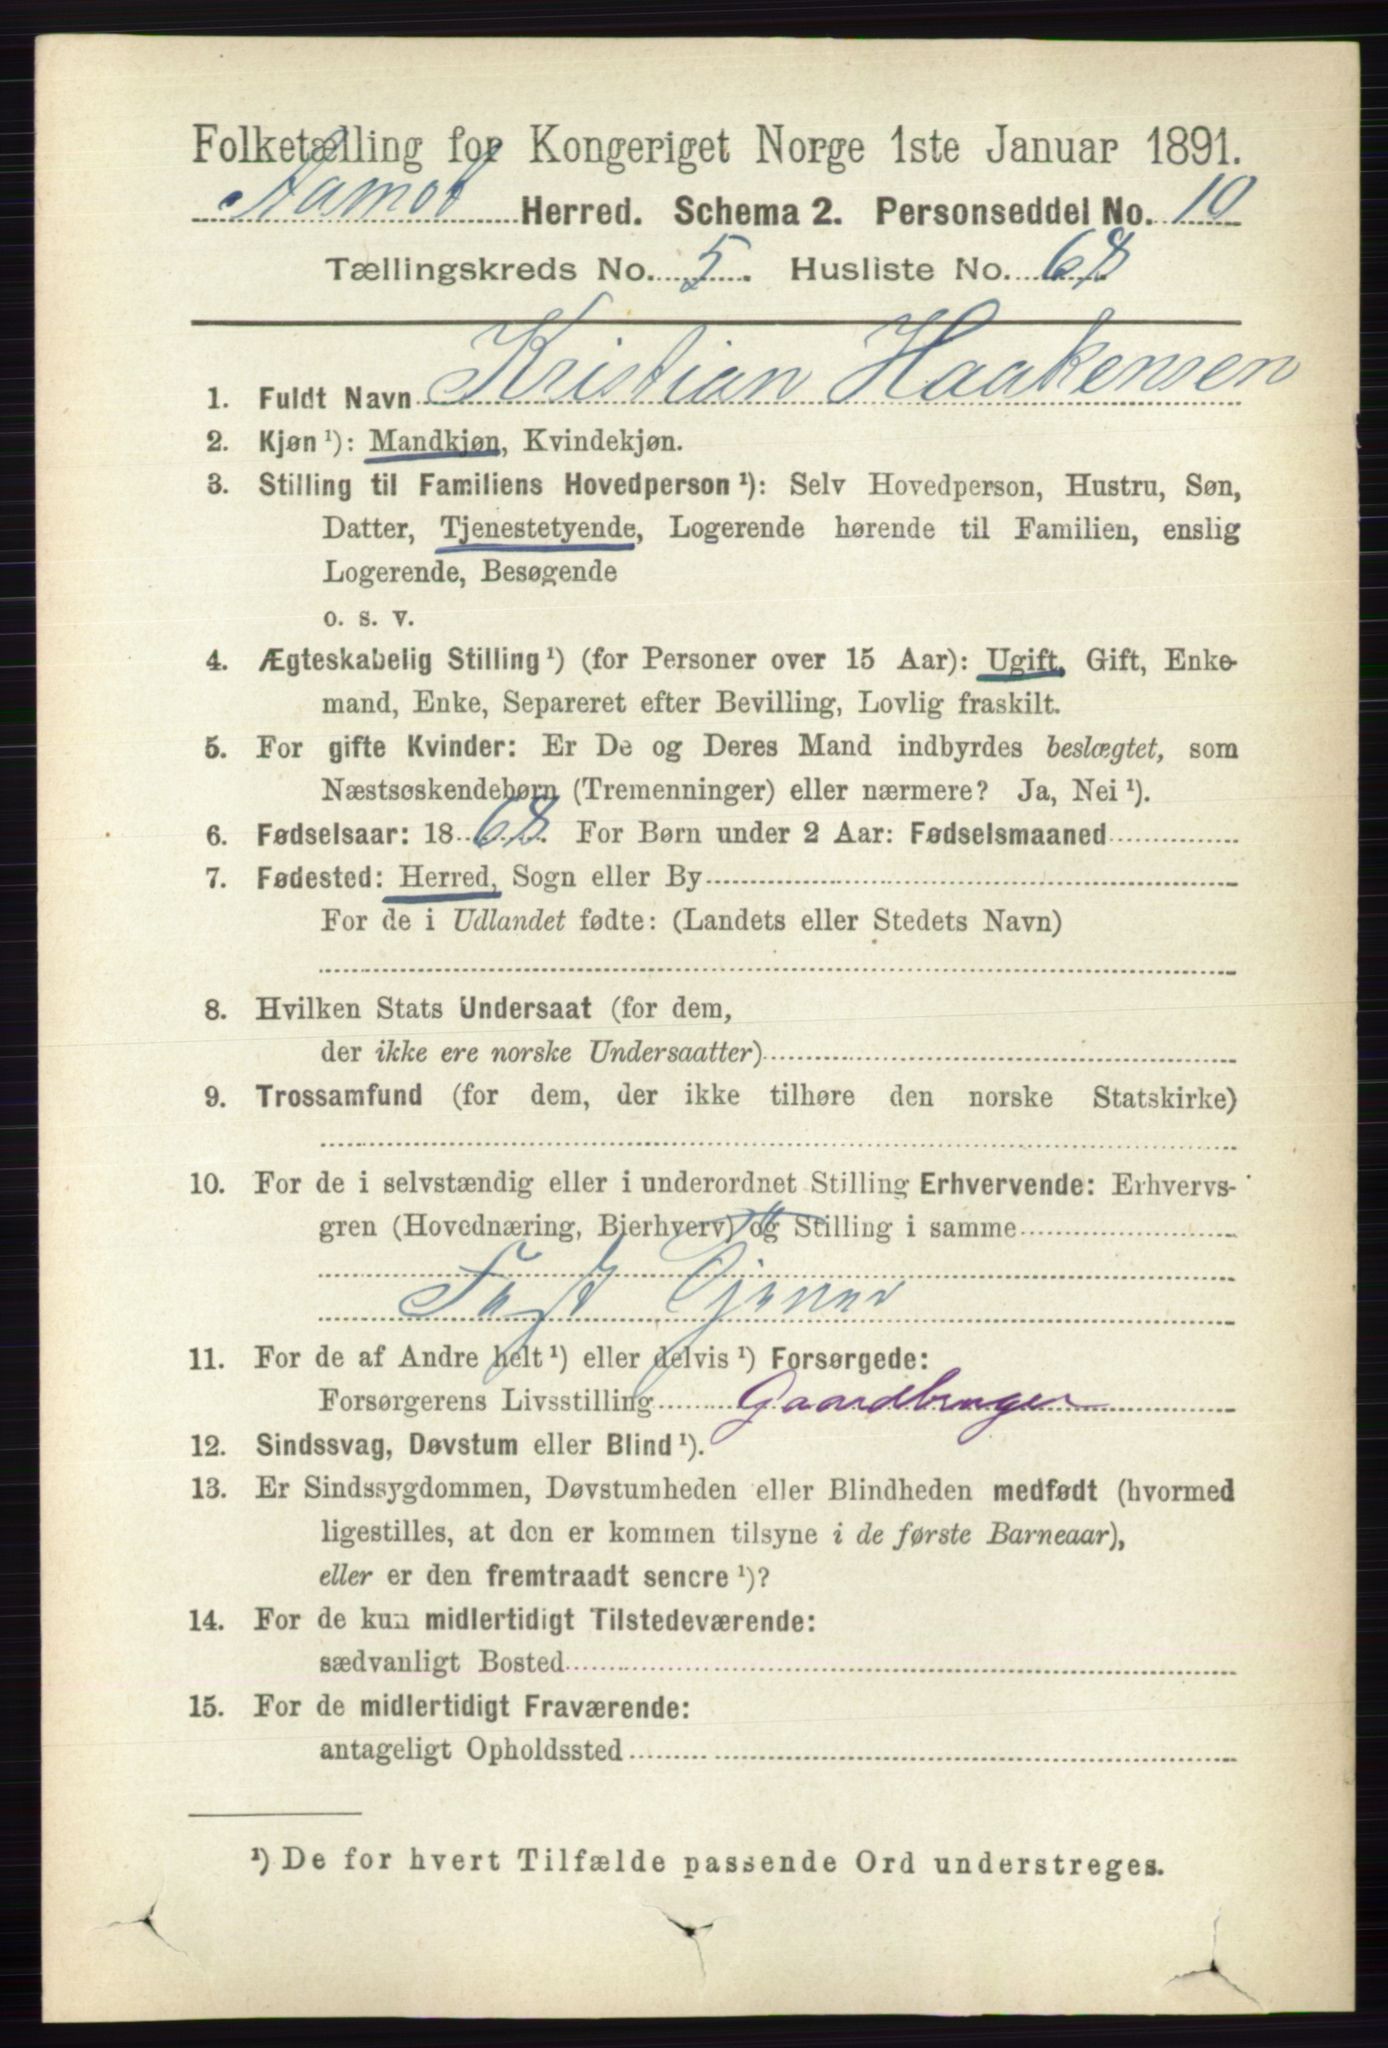 Folketælling for Kongeriget Norge 1ste Januar 1891.
Aamot Herred. Schema 2. Personseddel No. 10
Tællingskreds No. 5. Husliste No. 68
1. Fuldt Navn Kristian Haakensen
2. Kjøn ¹): Mandkjøn, Kvindekjøn.
3. Stilling til Familiens Hovedperson ¹): Selv Hovedperson, Hustru, Søn,
Datter, Tjenestetyende, Logerende hørende til Familien, enslig
Logerende, Besøgende
o. s. v.
4. Ægteskabelig Stilling ¹) (for Personer over 15 Aar): Ugift, Gift, Enke-
mand, Enke, Separeret efter Bevilling, Lovlig fraskilt.
5. For gifte Kvinder: Er De og Deres Mand indbyrdes beslægtet, som
Næstsøskendebørn (Tremenninger) eller nærmere? Ja, Nei ¹).
6. Fødselsaar: 18 68. For Børn under 2 Aar: Fødselsmaaned
7. Fødested: Herred, Sogn eller By
For de i Udlandet fødte: (Landets eller Stedets Navn)
8. Hvilken Stats Undersaat (for dem,
der ikke ere norske Undersaatter)
9. Trossamfund (for dem, der ikke tilhøre den norske Statskirke)
10. For de i selvstændig eller i underordnet Stilling Erhvervende: Erhvervs-
gren (Hovednæring, Bierhverv) og Stilling i samme
Fast Tjener
11. For de af Andre helt ¹) eller delvis ¹) Forsørgede:
Forsørgerens Livsstilling Gaardbruger
12. Sindssvag, Døvstum eller Blind ¹).
13. Er Sindssygdommen, Døvstumheden eller Blindheden medfødt (hvormed
ligestilles, at den er kommen tilsyne i de første Barneaar),
eller er den fremtraadt senere ¹)?
14. For de kun midlertidigt Tilstedeværende:
sædvanligt Bosted
15. For de midlertidigt Fraværende:
antageligt Opholdssted
¹) De for hvert Tilfælde passende Ord understreges.